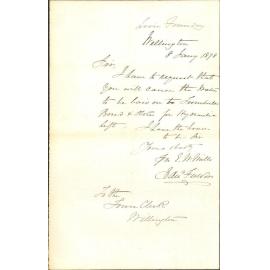 Lion Foundry
Wellington
8 Jany 1878
Sir,
I have to request that
you will cause the Water
to be laid on to Turnbulls
Bond & Store for Hydraulic
Lift. I have the honor
to be Sir
Yours obdtly
for E. W. Mills
To the
Town Clerk
Wellington